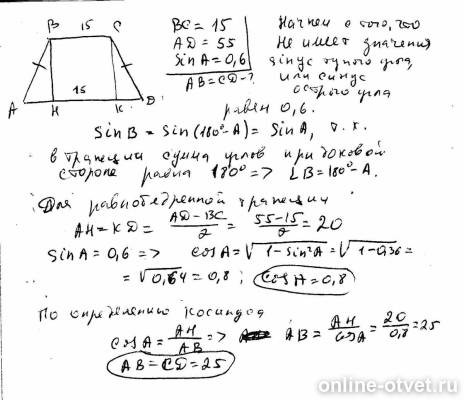 B 15 C
15
A H K D
BC = 15
AD = 55
Sin A = 0,6
AB = CD - ?
Начнем с того, что
не имеет значения
синус тупого угла,
или синус
острого угла
равен 0,6.
Sin B = Sin(180°-A) = Sin A, т.к.
в трапеции сумма углов при боковой
стороне равна 180° => ∠B = 180° - A.
Для равнобедренной трапеции
AH = KD = (AD - BC)/2 = (55-15)/2 = 20
Sin A = 0,6 => cos A = √(1 - sin²A) = √(1-0,36) =
= √0,64 = 0,8; cos A = 0,8
По определению косинуса
cos A = AH/AB => AB = AH/cos A = 20/0,8 = 25
AB = CD = 25
online-otvet.ru